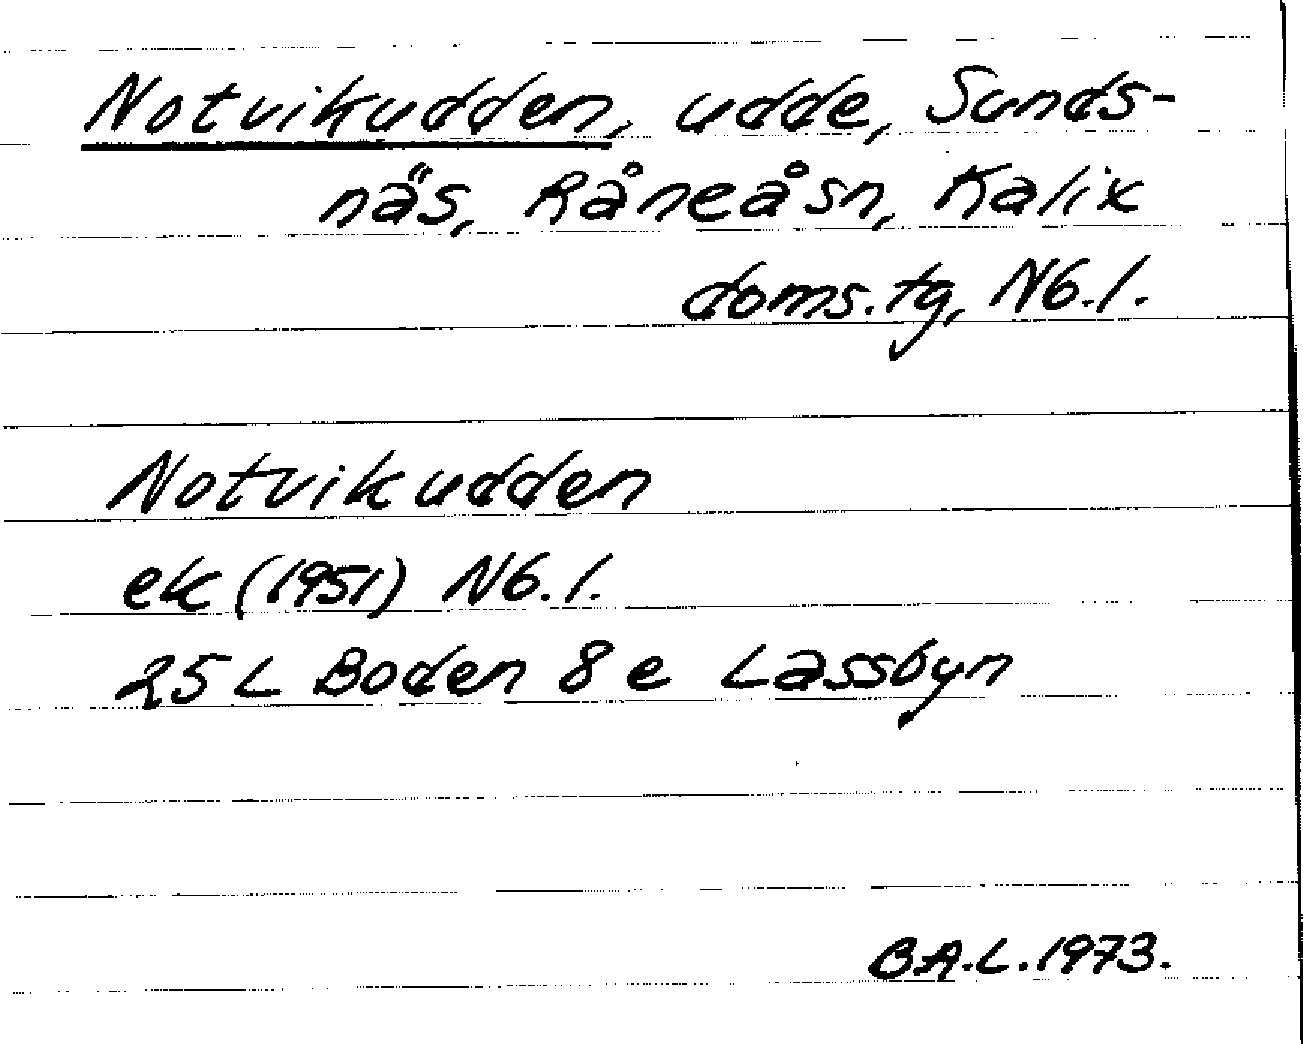 Notvikudden, udde, Sunds-
näs, Råneå sn, Kalix
doms.tg, Nb.l.
Notvikudden
ek (1951) Nb.l.
25 L Boden 8 e Lassbyn
B.A.L. 1973.